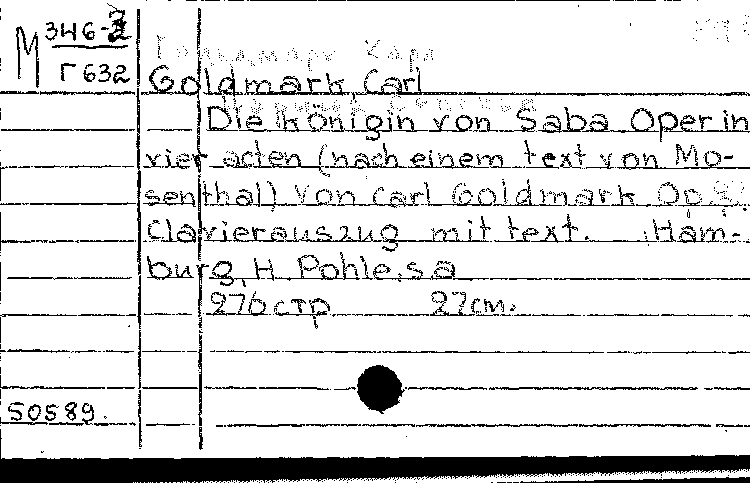 M 346-2
Г 632
Гольдмарк Карл
Goldmark, Carl
Die Königin von Saba Oper in
vier acten (nach einem text von Mo-
senthal) von Carl Goldmark Op.
Clavierauszug mit text. Ham-
burg, H. Pohle, s a
276 стр 27 cm.
50589.